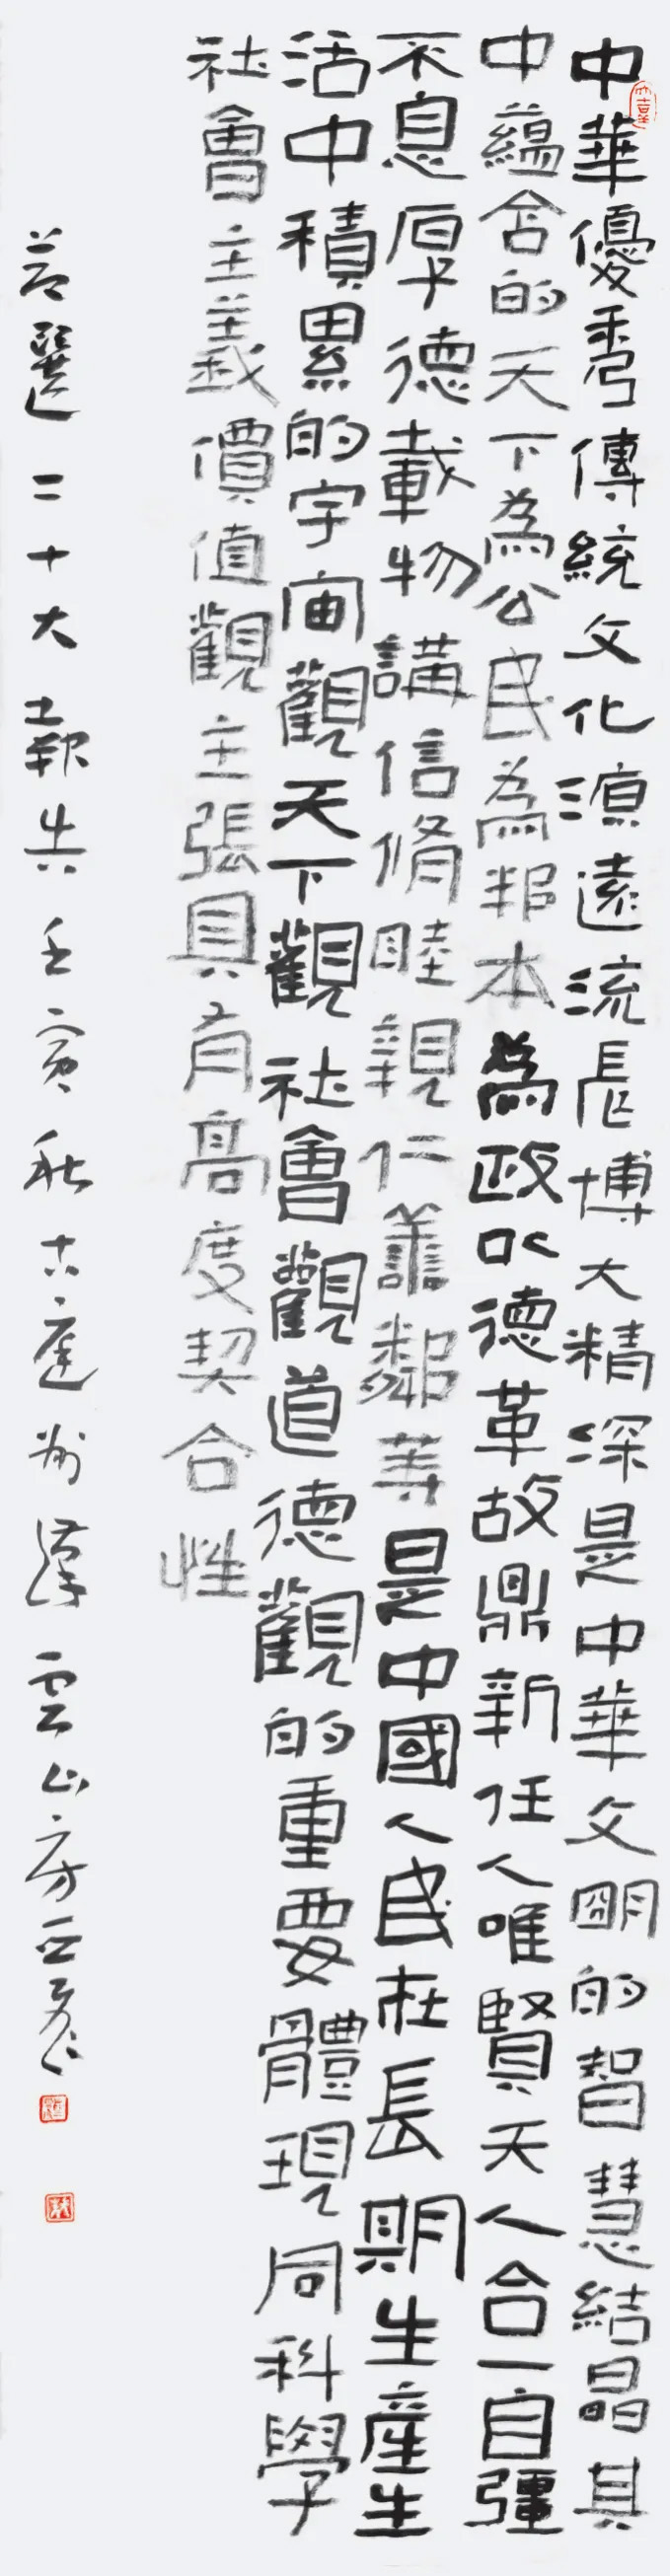 中華優秀傳統文化源遠流長博大精深是中華文明的智慧結晶其
中蘊含的天下為公民為邦本為政以德革故鼎新任人唯賢天人合一自彊
不息厚德載物講信脩睦親仁善鄰等是中國人民在長期生產生
活中積累的宇宙觀天下觀社會觀道德觀的重要體現同科學
社會主義價值觀主張具有高度契合性
節選二十大報告壬寅秋古庭州漢雲山房